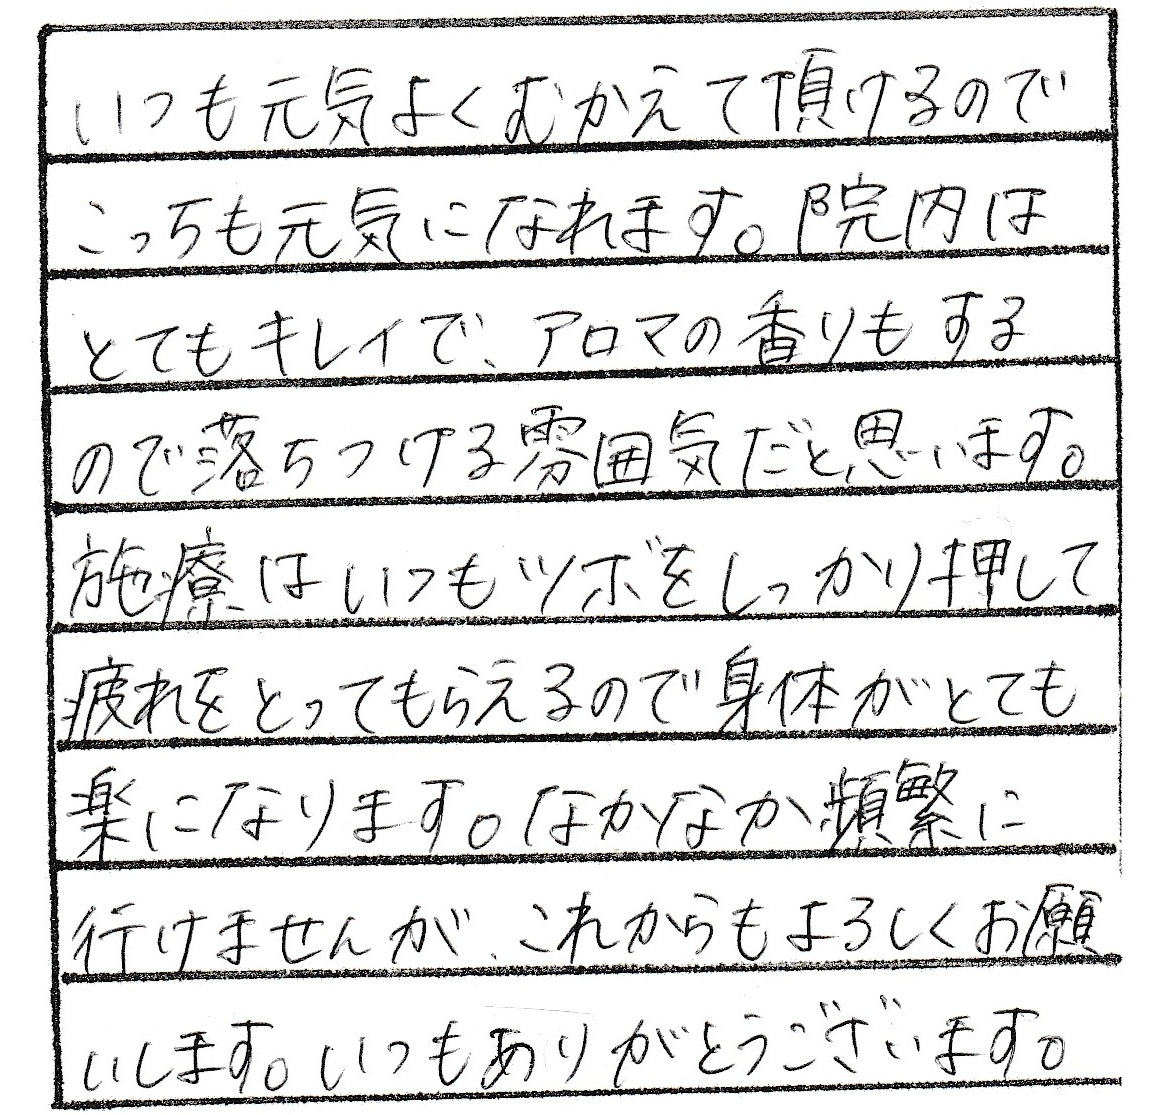 いつも元気よくむかえて頂けるので
こっちも元気になれます。院内は
とてもキレイで、アロマの香りもする
ので落ちつける雰囲気だと思います。
施療はいつもツボをしっかり押して
疲れをとってもらえるので身体がとても
楽になります。なかなか頻繁に
行けませんが、これからもよろしくお願
いします。いつもありがとうございます。